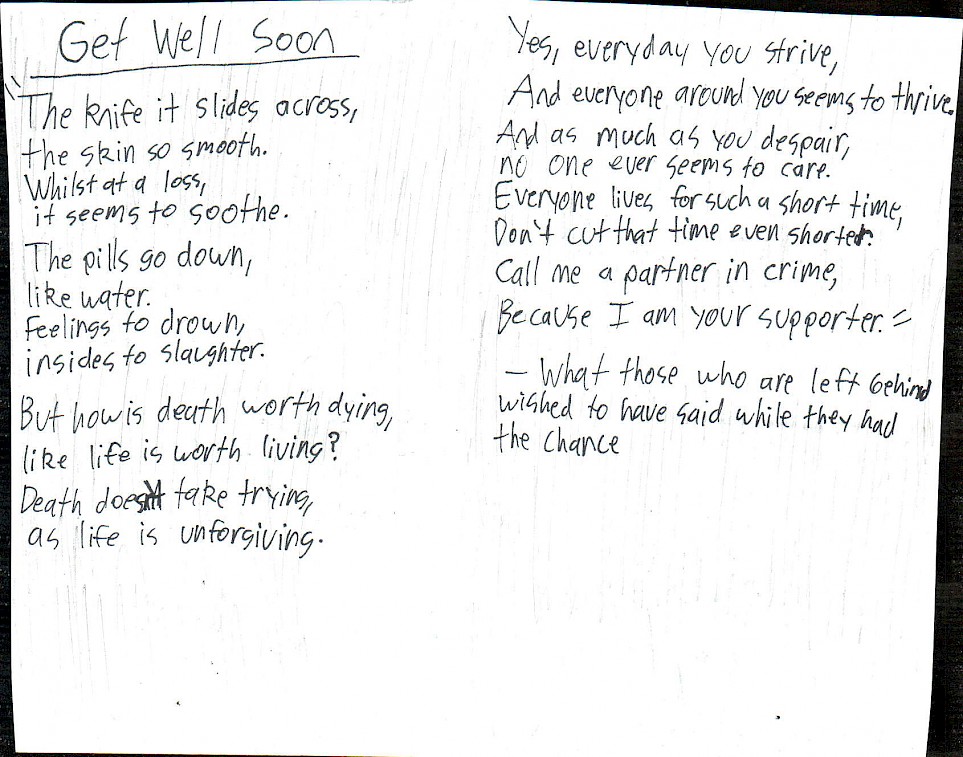 Get Well Soon
"The knife it slides across,
the skin so smooth.
Whilst at a loss,
it seems to soothe.
The pills go down,
like water.
Feelings to drown,
insides to slaughter.
But how is death worth dying,
like life is worth living?
Death doesn't take trying,
as life is unforgiving.
Yes, everyday you strive,
And everyone around you seems to thrive.
And as much as you despair,
no one ever seems to care.
Everyone lives for such a short time,
Don't cut that time even shorter.
Call me a partner in crime,
Because I am your supporter."
- What those who are left behind
wished to have said while they had
the chance